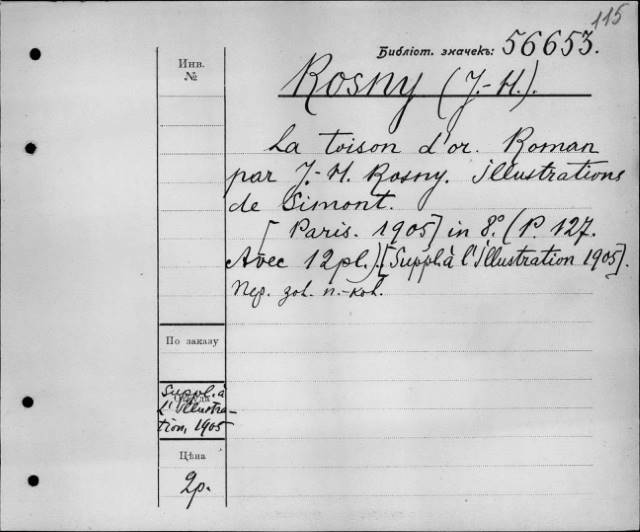 115
Библіот. значекъ: 56653.
Инв.
№
Rosny (J.-H.).
La toison d'or. Roman
par J.-H. Rosny. illustrations
de Simont.
[Paris. 1905] in 8º. (P. 127.
Avec 12 pl.). [Suppl. à l'illustration 1905].
Пер. зол. п.-кол.
По заказу
Suppl. à
L'Illustra-
tion, 1905
Цѣна
2 р.